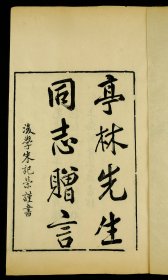 亭林先生
同志贈言
後學朱記榮謹書